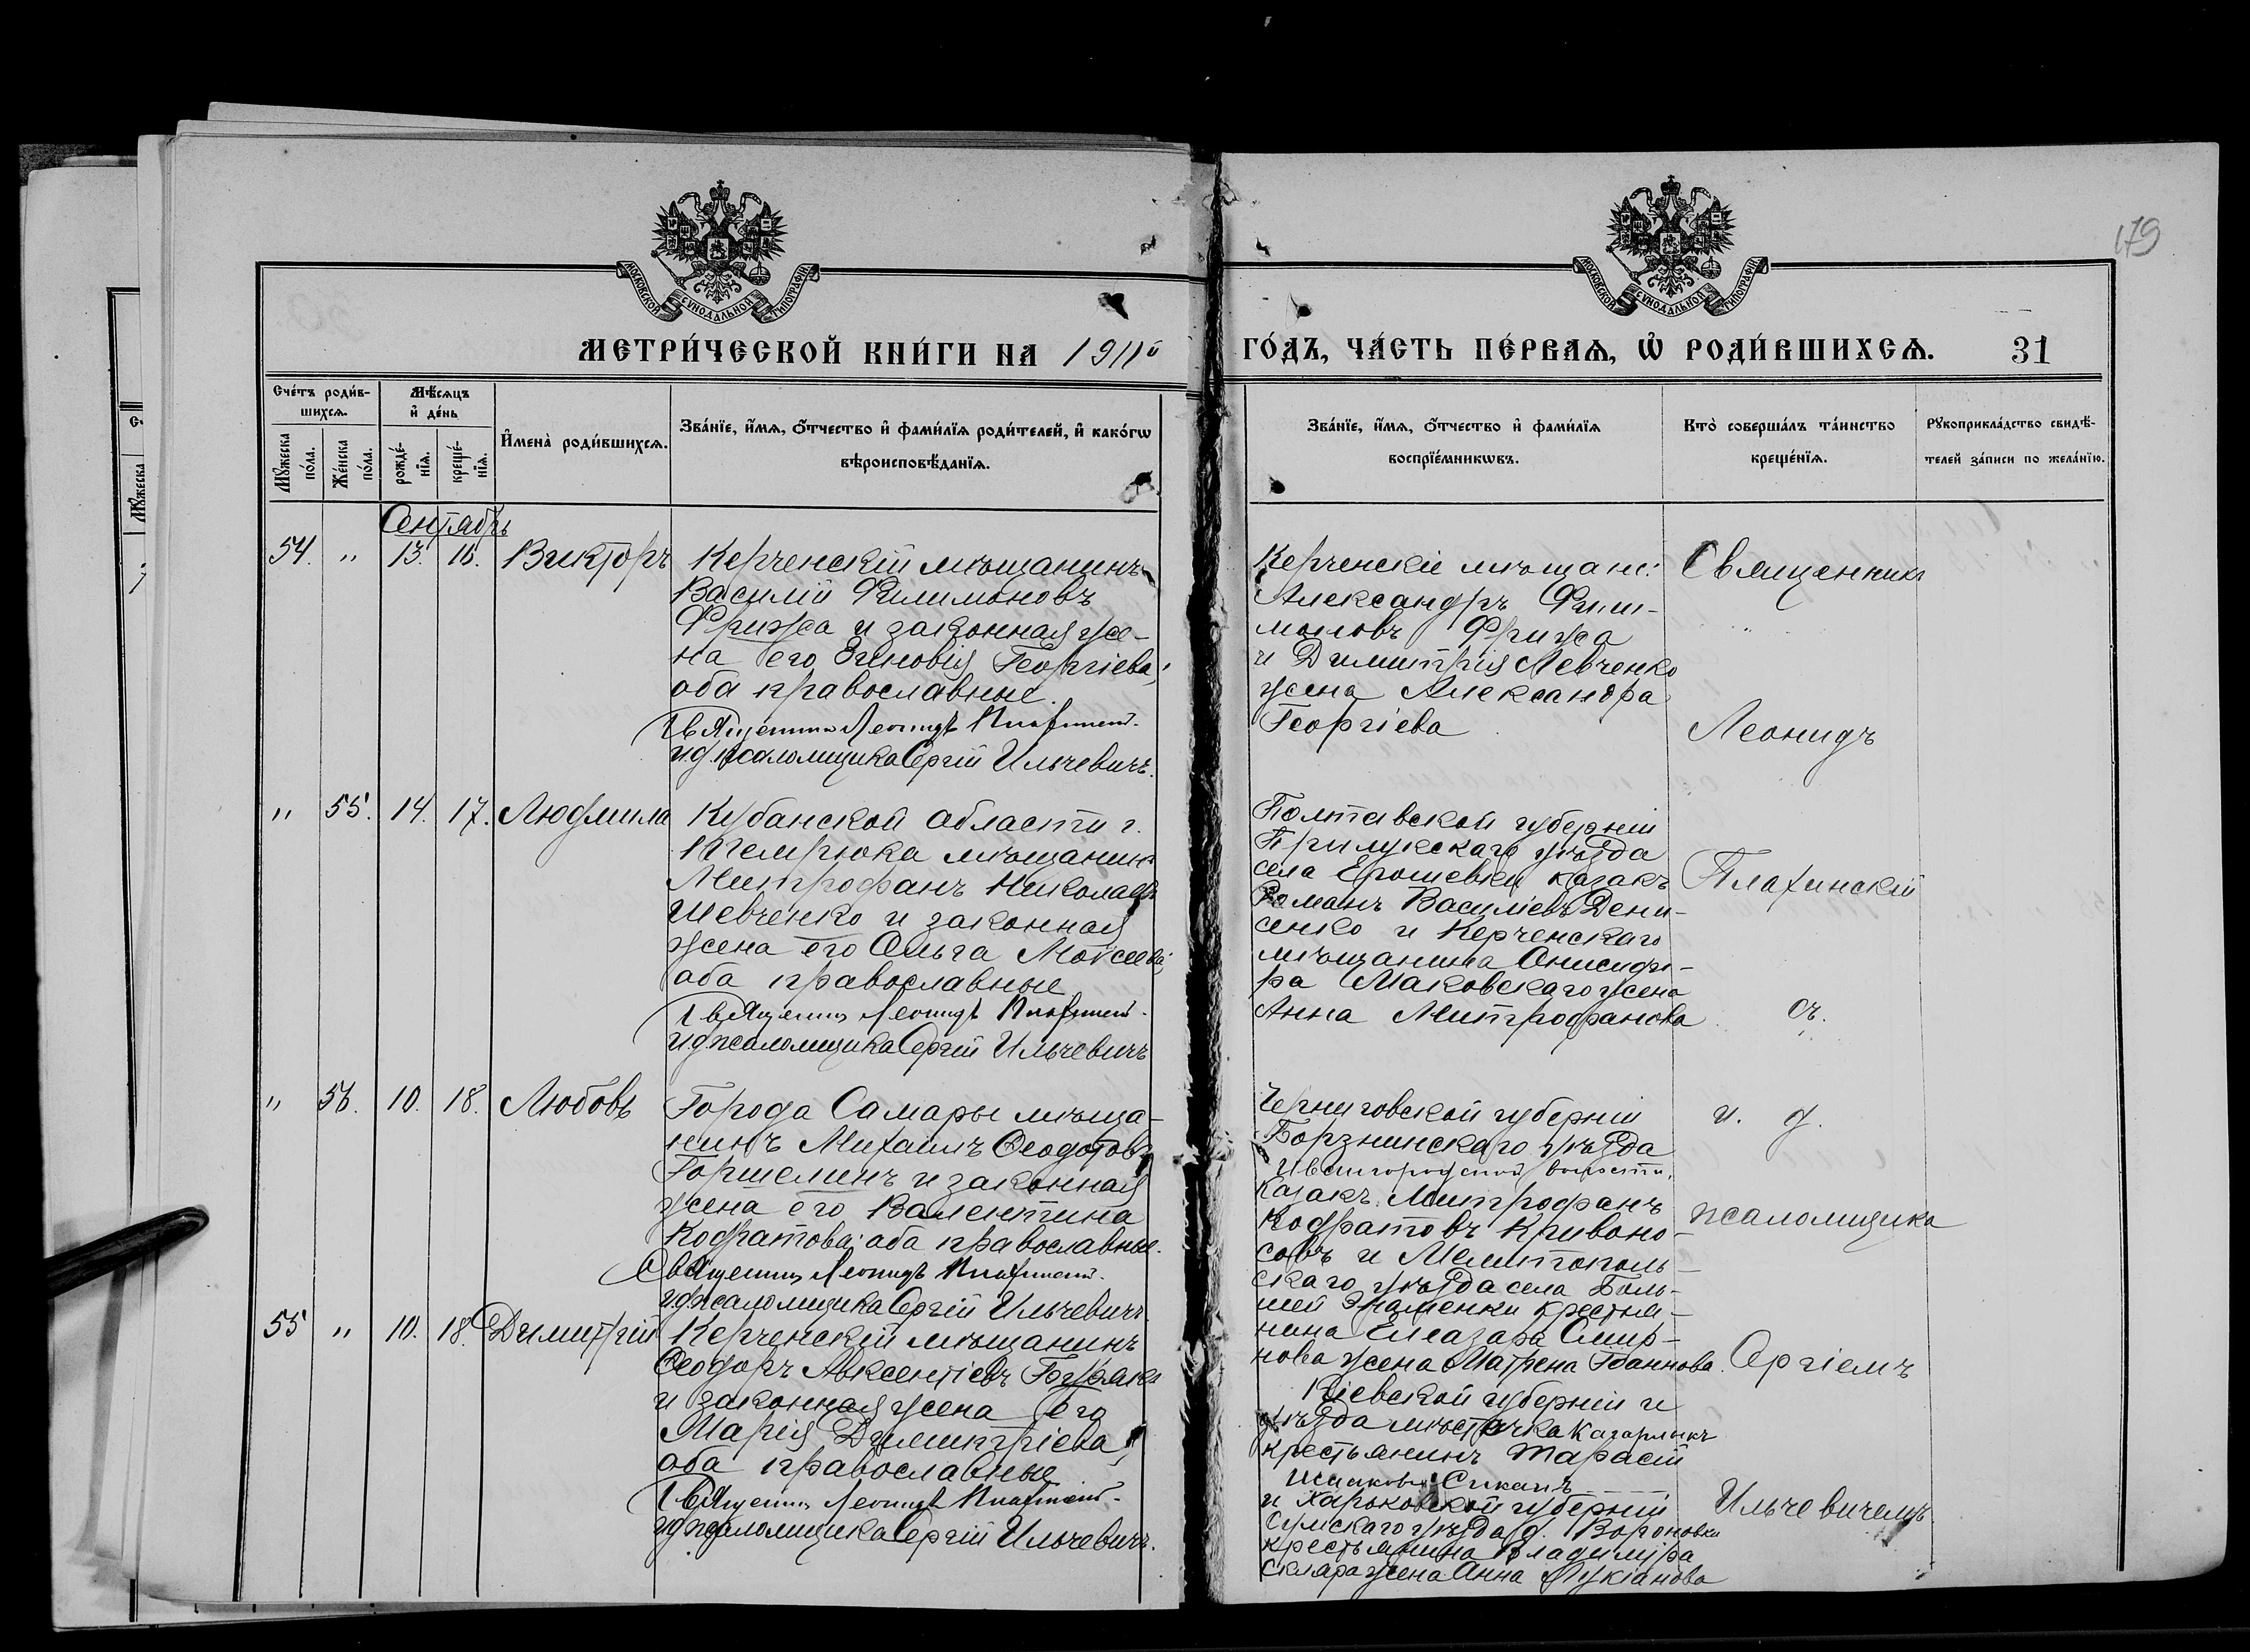 179
МОСКОВСКОЙ СѴНОДАЛЬНОЙ ТИПОГРАФІИ
МОСКОВСКОЙ СѴНОДАЛЬНОЙ ТИПОГРАФІИ
МЕТРИ́ЧЕСКОЙ КНИ́ГИ НА 1911й
ГО́ДЪ, ЧА́СТЬ ПЕ́РВАѦ, Ѡ РОДИ́ВШИХСѦ. 31
Сче́тъ роди́в-
шихсѧ.
Мѣ́сѧцъ
и҆ де́нь
Мꙋ́жеска по́ла.
Же́нска по́ла.
рожде́-
нїѧ.
креще́-
нїѧ.
И҆мена̀ роди́вшихсѧ.
Зва́нїе, и҆́мѧ, ѻ҆́тчество и҆ фами́лїѧ роди́телей, и҆ како́гѡ
вѣроисповѣ́данїѧ.
Зва́нїе, и҆́мѧ, ѻ҆́тчество и҆ фами́лїѧ
воспрїе́мникѡвъ.
Кто̀ соверша́лъ та́инство
креще́нїѧ.
Рꙋкоприкла́дство свидѣ́-
телей за́писи по жела́нїю.
Сентябрь
54. " 13. 16. Викторъ
Керченскій мѣщанинъ
Василій Филимоновъ
Фрижа и законная же-
на его Зиновія Георгіева;
оба православные.
Священникъ Леонидъ
и.д. псаломщика Сергій Ильчевичъ.
Керченскіе мѣщане:
Александръ Фили-
моновъ Фрижа
и Димитрія Левченко
жена Александра
Георгіева
" 55. 14. 17. Людмила
Кубанской области г.
Темрюка мѣщанинъ
Митрофанъ Николаевъ
Шевченко и законная
жена его Ольга Моисеева;
оба православные
Священникъ Леонидъ
и.д. псаломщика Сергій Ильчевичъ
Полтавской губерніи
Прилукскаго уѣзда
села Ярошевки казакъ
Романъ Василіевъ Дени-
сенко и Керченскаго
мѣщанина Онисифо-
ра Маковскаго жена
Анна Митрофанова
" 56. 10. 18. Любовь
Города Самары мѣща-
нинъ Михаилъ Ѳеодотовъ
Горшелинъ и законная
жена его Валентина
Кодратова; оба православные.
Священникъ Леонидъ
и.д. псаломщика Сергій Ильчевичъ.
Черниговской губерніи
Борзнинскаго уѣзда
Ивангородской волости,
казакъ Митрофанъ
Кодратовъ Кривоно-
совъ и Мелитополь-
скаго уѣзда села Боль-
шей Знаменки крестья-
нина Елеазара Смир-
нова жена Матрена Іоаннова.
55 " 10. 18. Димитрій
Керченскій мѣщанинъ
Ѳеодоръ Авксентіевъ
и законная жена его
Марія Димитріева;
оба православные
Священникъ Леонидъ
и.д. псаломщика Сергій Ильчевичъ.
Кіевской губерніи и
уѣзда мѣстечка Кагарлыкъ
крестьянинъ Тарасій
Сиканъ
и Харьковской губерніи
Сумскаго уѣзда д. Вороновки
крестьянина Владиміра
Скляра жена Анна Лукіанова
Священникъ
Леонидъ
Плахинскій
съ
и. д.
псаломщика
Сергіемъ
Ильчевичемъ